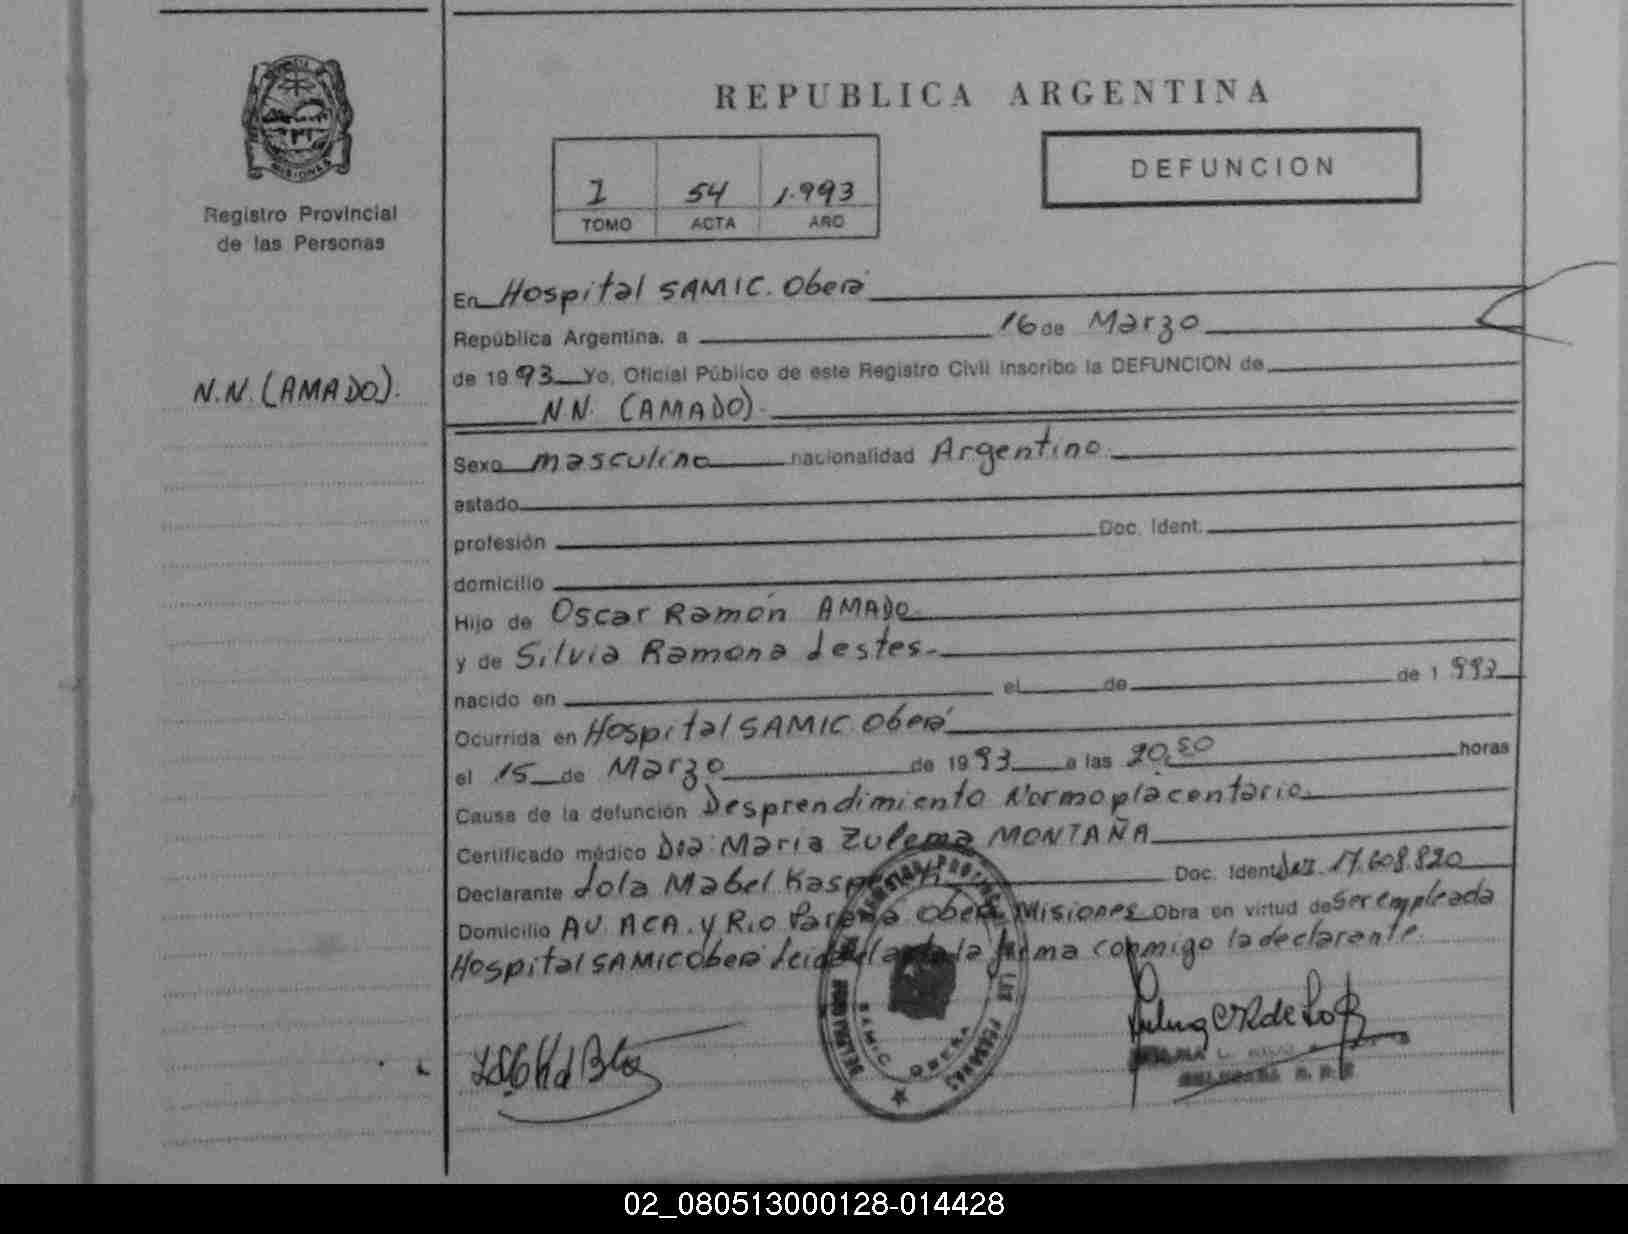 REPUBLICA ARGENTINA
MISIONES
Registro Provincial
de las Personas
DEFUNCION
I 54 1.993
TOMO ACTA AÑO
N.N. (AMADO).
En Hospital SAMIC. Oberá
República Argentina, a 16 de Marzo
de 1993 Yo, Oficial Público de este Registro Civil inscribo la DEFUNCION de
N.N. (AMADO).
Sexo masculino nacionalidad Argentino.
estado
profesión Doc. Ident.
domicilio
Hijo de Oscar Ramón AMADO
y de Silvia Ramona Lestes.
nacido en el de de 1993
Ocurrida en Hospital SAMIC Oberá
el 15 de Marzo de 1993 a las 20,50 horas
Causa de la defunción Desprendimiento Normoplacentario.
Certificado médico Dra. Maria Zulema MONTAÑA
Declarante Lola Mabel Doc. Ident. 17.608.820
Domicilio AV. ACA. y Rio Parana Oberá Misiones Obra en virtud de ser empleada
Hospital SAMIC Oberá Leida el acta la firma conmigo la declarante.
SAMIC OBERA
02_080513000128-014428